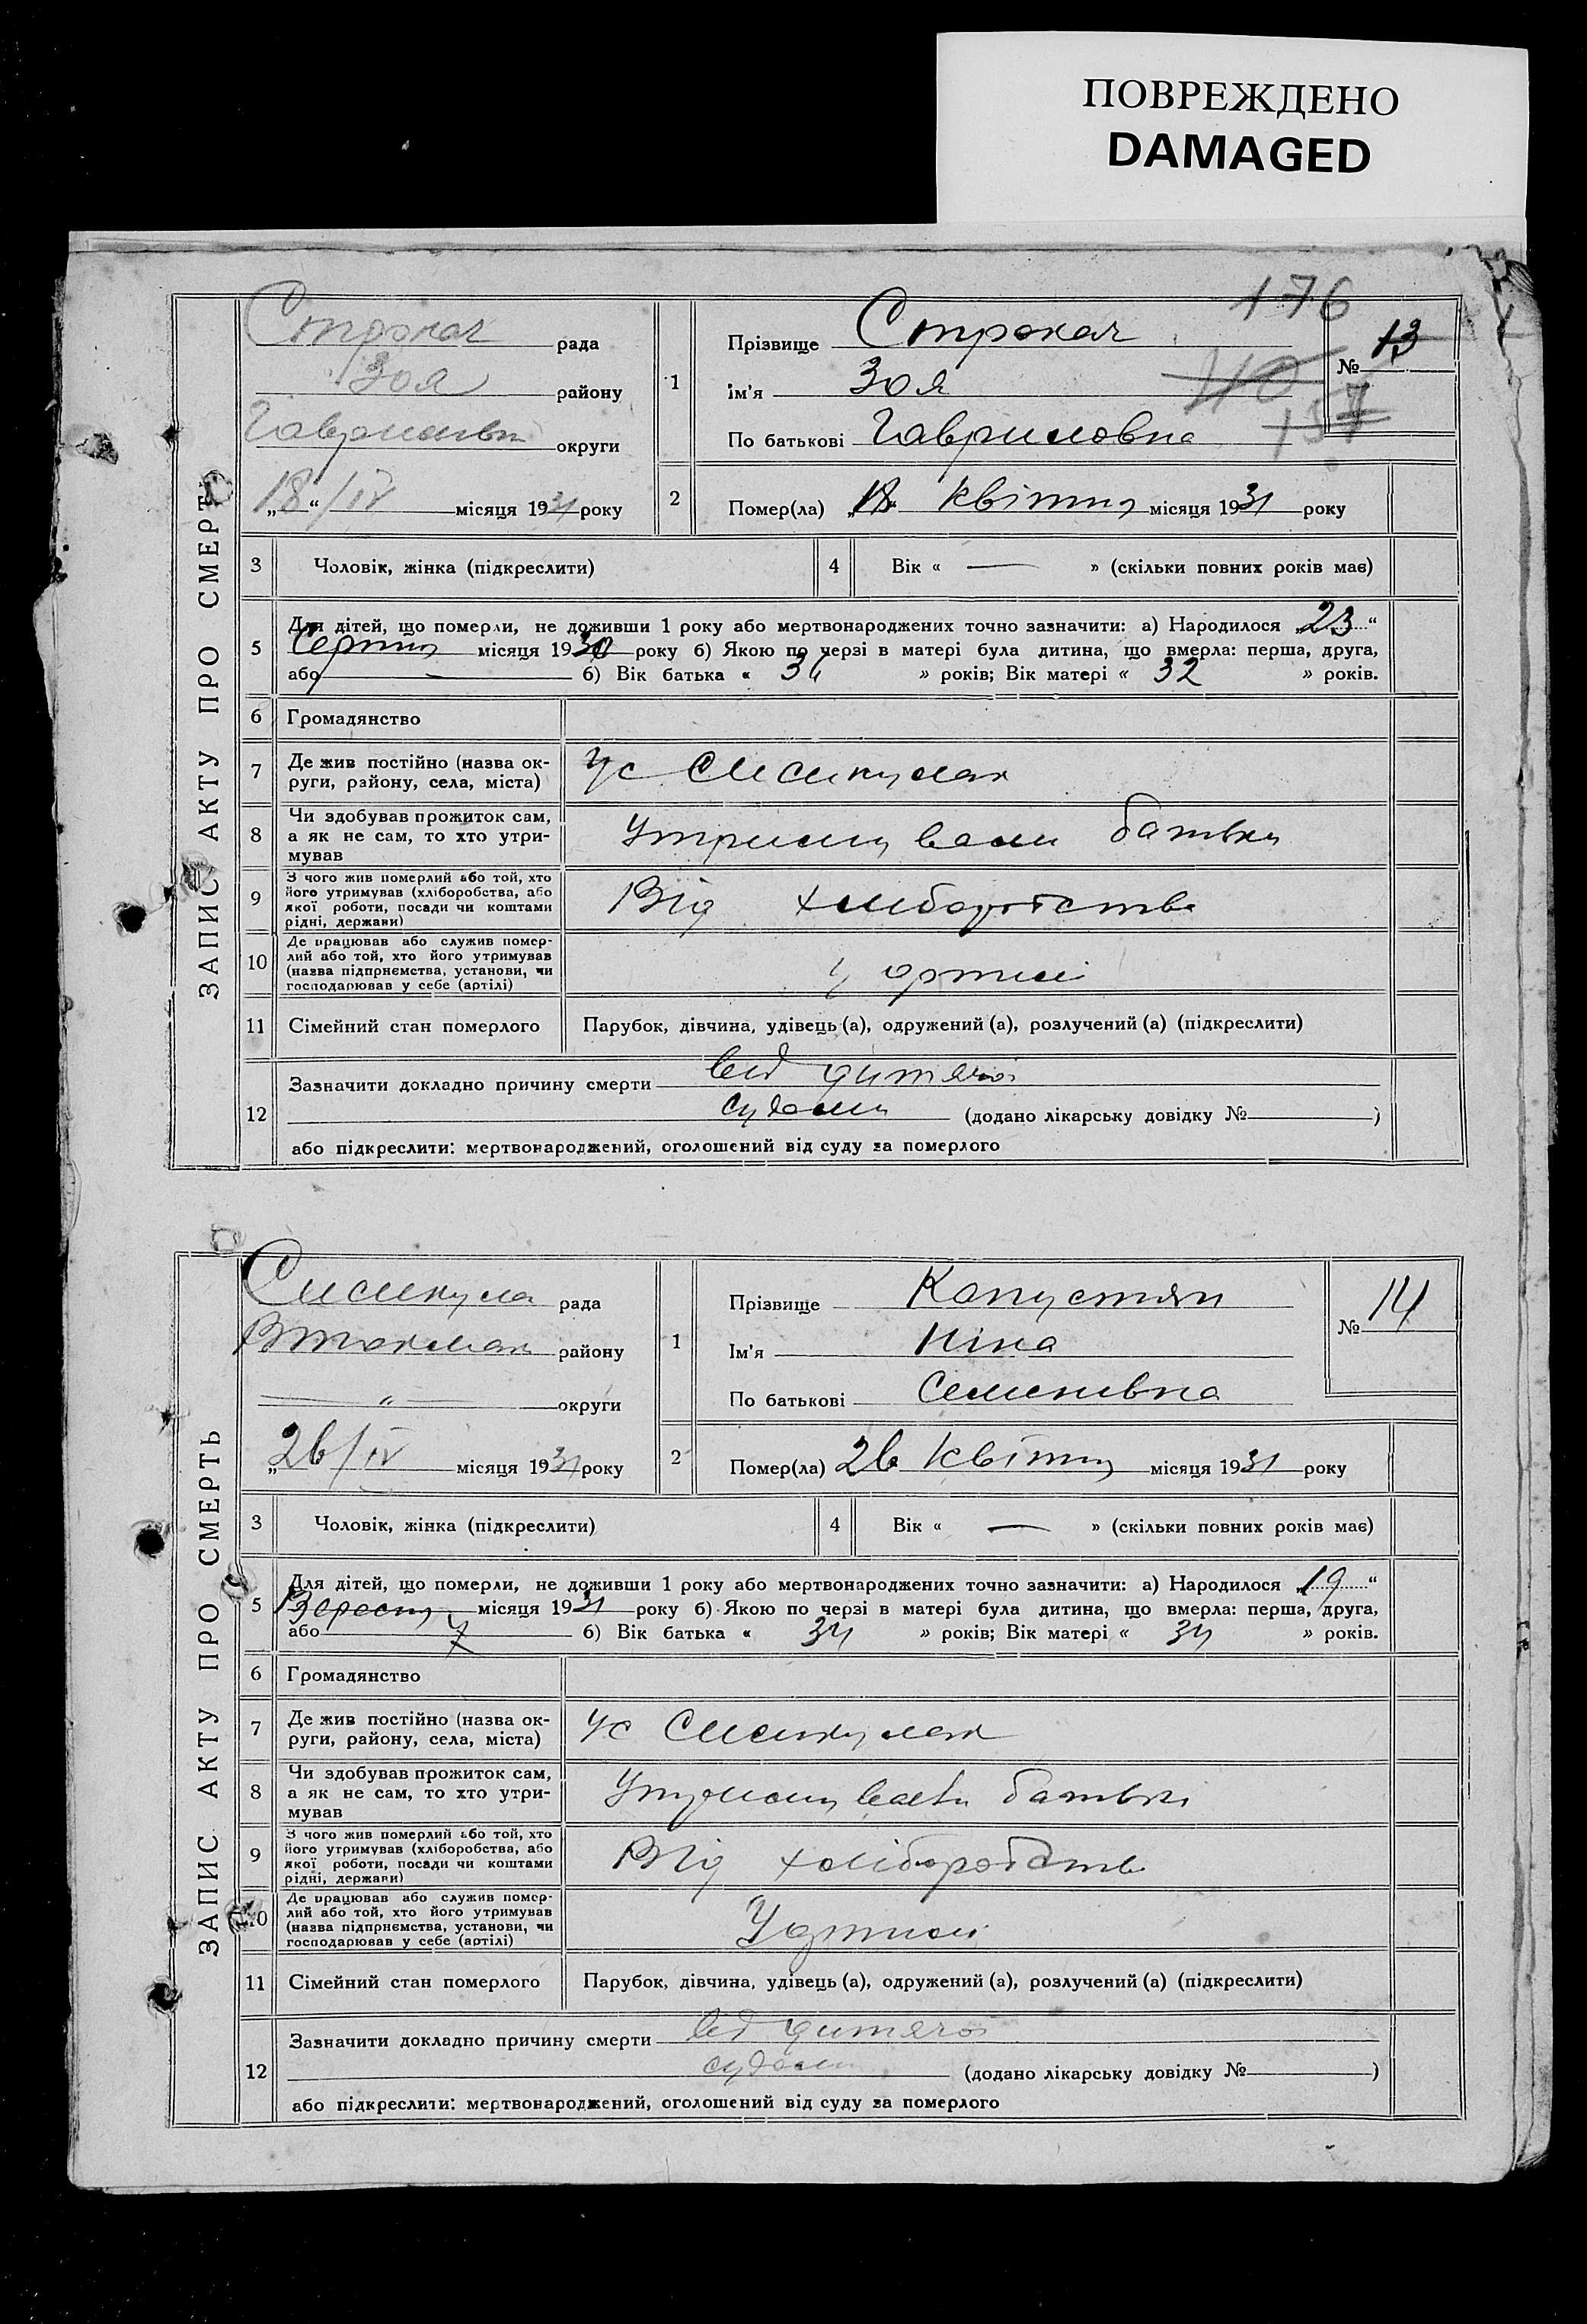 ПОВРЕЖДЕНО
DAMAGED
176
ЗАПИС АКТУ ПРО СМЕРТЬ
Строкач рада
Зоя району
округи
„18“/IV місяця 1931 року
1
Прізвище Строкач
Ім'я Зоя
По батькові Гавриловна
№ 13
40
157
2
Помер(ла) „18“ Квітня місяця 1931 року
3 Чоловік, жінка (підкреслити)
4 Вік « — » (скільки повних років має)
5 Для дітей, що померли, не доживши 1 року або мертвонароджених точно зазначити: а) Народилося „23“
Серпня місяця 1930 року б) Якою по черзі в матері була дитина, що вмерла: перша, друга,
або — б) Вік батька « » років; Вік матері « 32 » років.
6 Громадянство
7 Де жив постійно (назва ок-
руги, району, села, міста)
8 Чи здобував прожиток сам,
а як не сам, то хто утри-
мував
Утримували батьки
9 З чого жив померлий або той, хто
його утримував (хліборобства, або
якої роботи, посади чи коштами
рідні, держави)
Від хліборобства
10 Де працював або служив помер-
лий або той, хто його утримував
(назва підприємства, установи, чи
господарював у себе (артілі)
У артилі
11 Сімейний стан померлого
Парубок, дівчина, удівець (а), одружений (а), розлучений (а) (підкреслити)
12 Зазначити докладно причину смерти від дитячої
судоми (додано лікарську довідку № )
або підкреслити: мертвонароджений, оголошений від суду за померлого
ЗАПИС АКТУ ПРО СМЕРТЬ
рада
Втокмак району
— „ — округи
„26/IV місяця 1931 року
1
Прізвище Капустян
Ім'я Ніна
По батькові Семенівна
№ 14
2
Помер(ла) 26 Квітня місяця 1931 року
3 Чоловік, жінка (підкреслити)
4 Вік « — » (скільки повних років має)
5 Для дітей, що померли, не доживши 1 року або мертвонароджених точно зазначити: а) Народилося „19“
Вересня місяця 1931 року б) Якою по черзі в матері була дитина, що вмерла: перша, друга,
або 7 б) Вік батька « 34 » років; Вік матері « 34 » років.
6 Громадянство
7 Де жив постійно (назва ок-
руги, району, села, міста)
8 Чи здобував прожиток сам,
а як не сам, то хто утри-
мував
Утримували батьки
9 З чого жив померлий або той, хто
його утримував (хліборобства, або
якої роботи, посади чи коштами
рідні, держави)
Від хліборобства
10 Де працював або служив помер-
лий або той, хто його утримував
(назва підприємства, установи, чи
господарював у себе (артілі)
У артилі
11 Сімейний стан померлого
Парубок, дівчина, удівець (а), одружений (а), розлучений (а) (підкреслити)
12 Зазначити докладно причину смерти від дитячої
судоми (додано лікарську довідку № )
або підкреслити: мертвонароджений, оголошений від суду за померлого